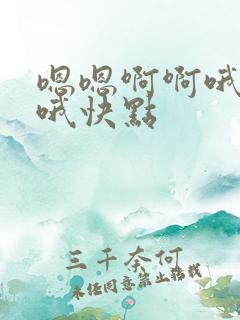 嗯嗯啊啊哦
哦快點
三千奈何
未经同意禁止转载